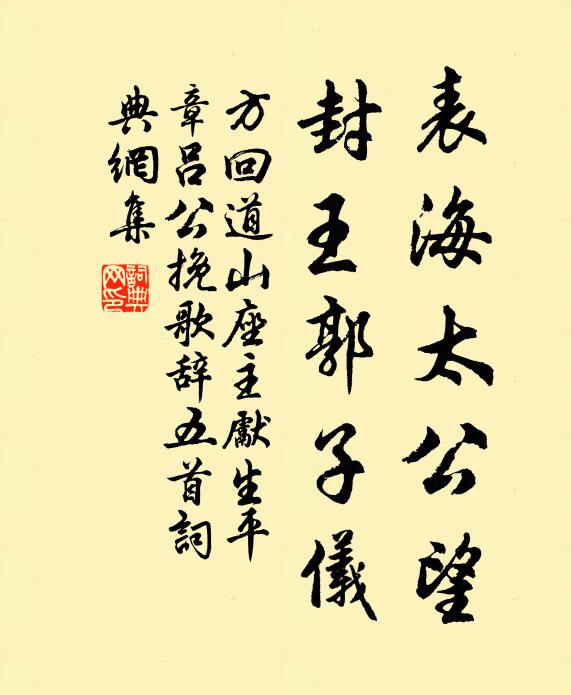 表海太公望
封王郭子儀
方回道山座主獻生平
章呂公挽歌辞五首詞
典網集
詞典网印